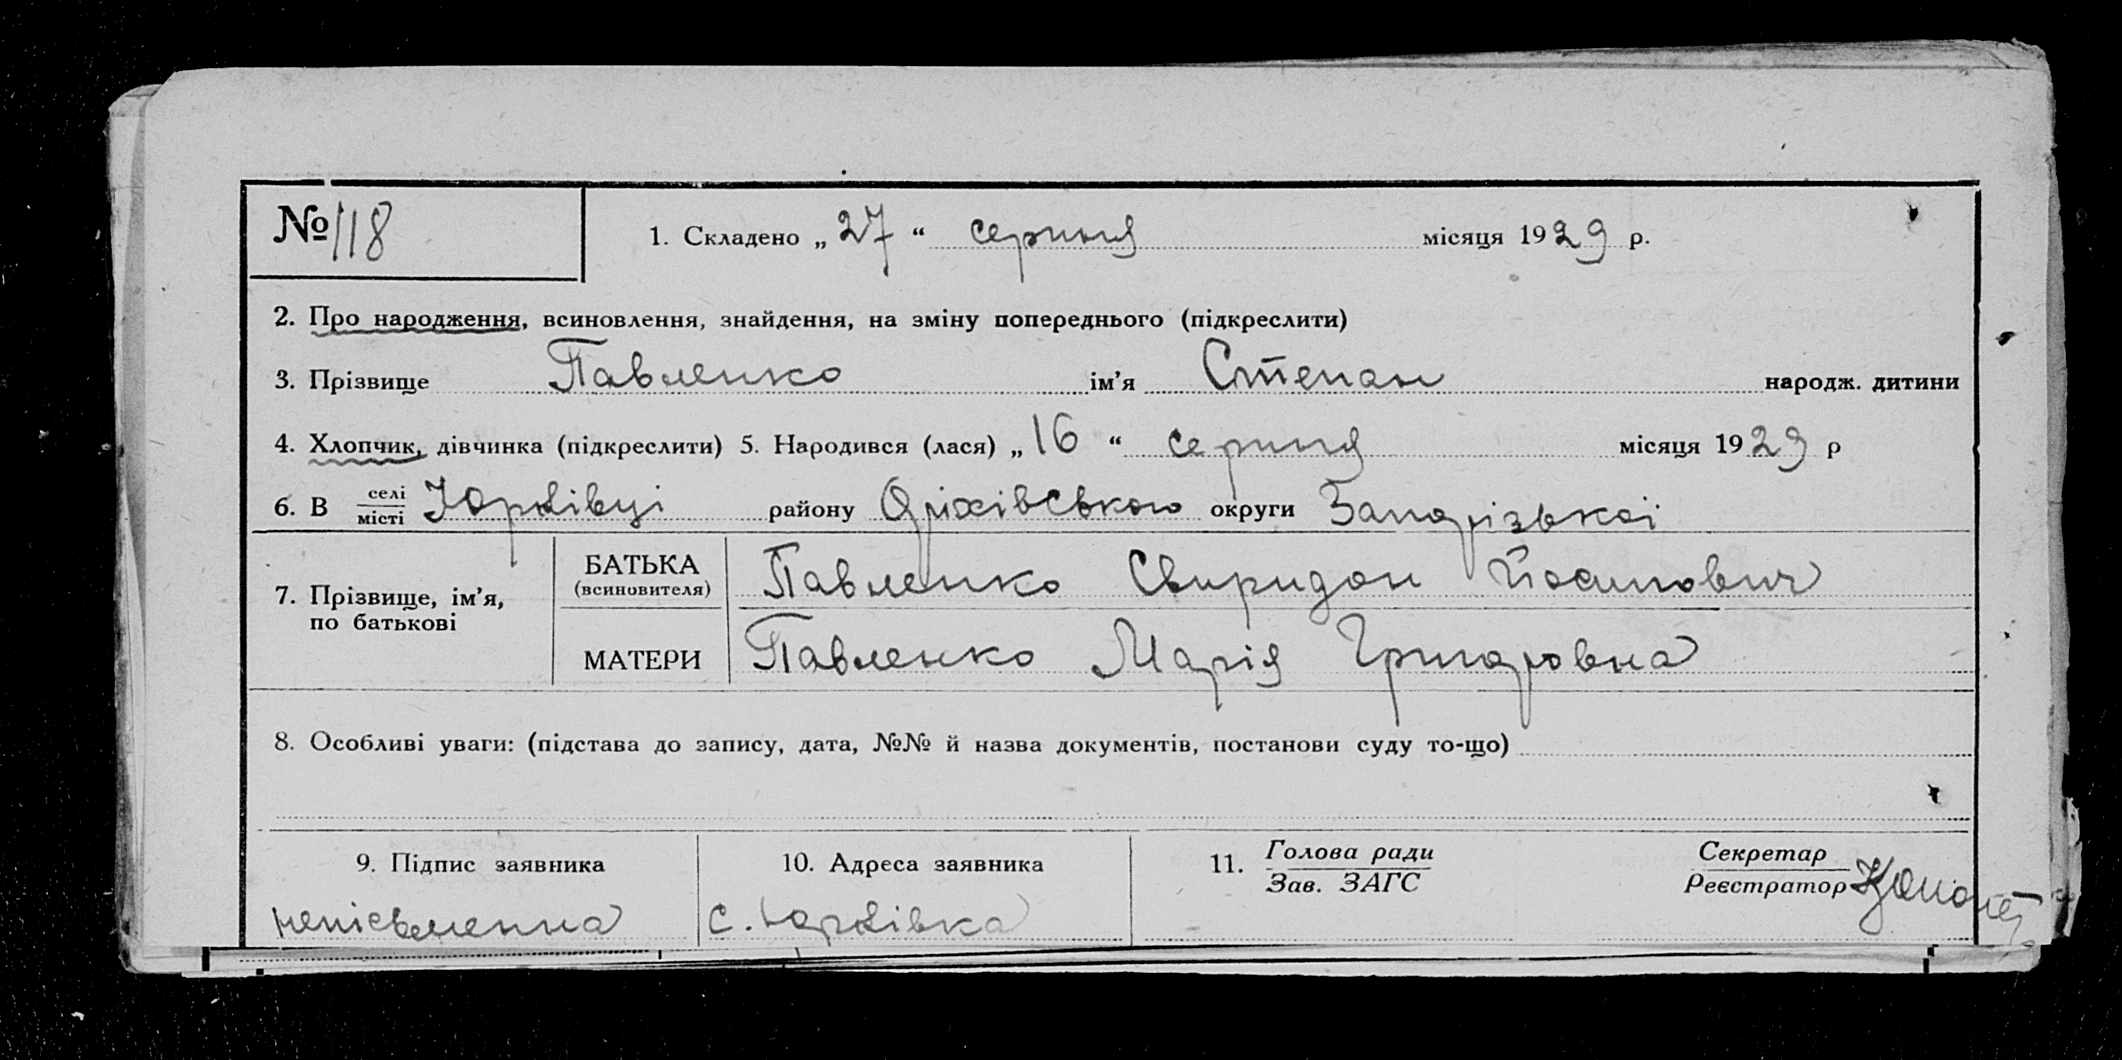 № 118
1. Складено „ 27 “ серпня місяця 1929 р.
2. Про народження, всиновлення, знайдення, на зміну попереднього (підкреслити)
3. Прізвище Павленко ім'я Степан народж. дитини
4. Хлопчик, дівчинка (підкреслити) 5. Народився (лася) „ 16 “ серпня місяця 1929 р
6. В селі/місті Юрківці району Оріхівського округи Запорізької
7. Прізвище, ім'я, по батькові
БАТЬКА (всиновителя) Павленко Свиридон Йосипович
МАТЕРИ Павленко Марія Григоровна
8. Особливі уваги: (підстава до запису, дата, №№ й назва документів, постанови суду то-що)
9. Підпис заявника 10. Адреса заявника 11. Голова ради/Зав. ЗАГС Секретар/Реєстратор
неписьменна с. Юрківка